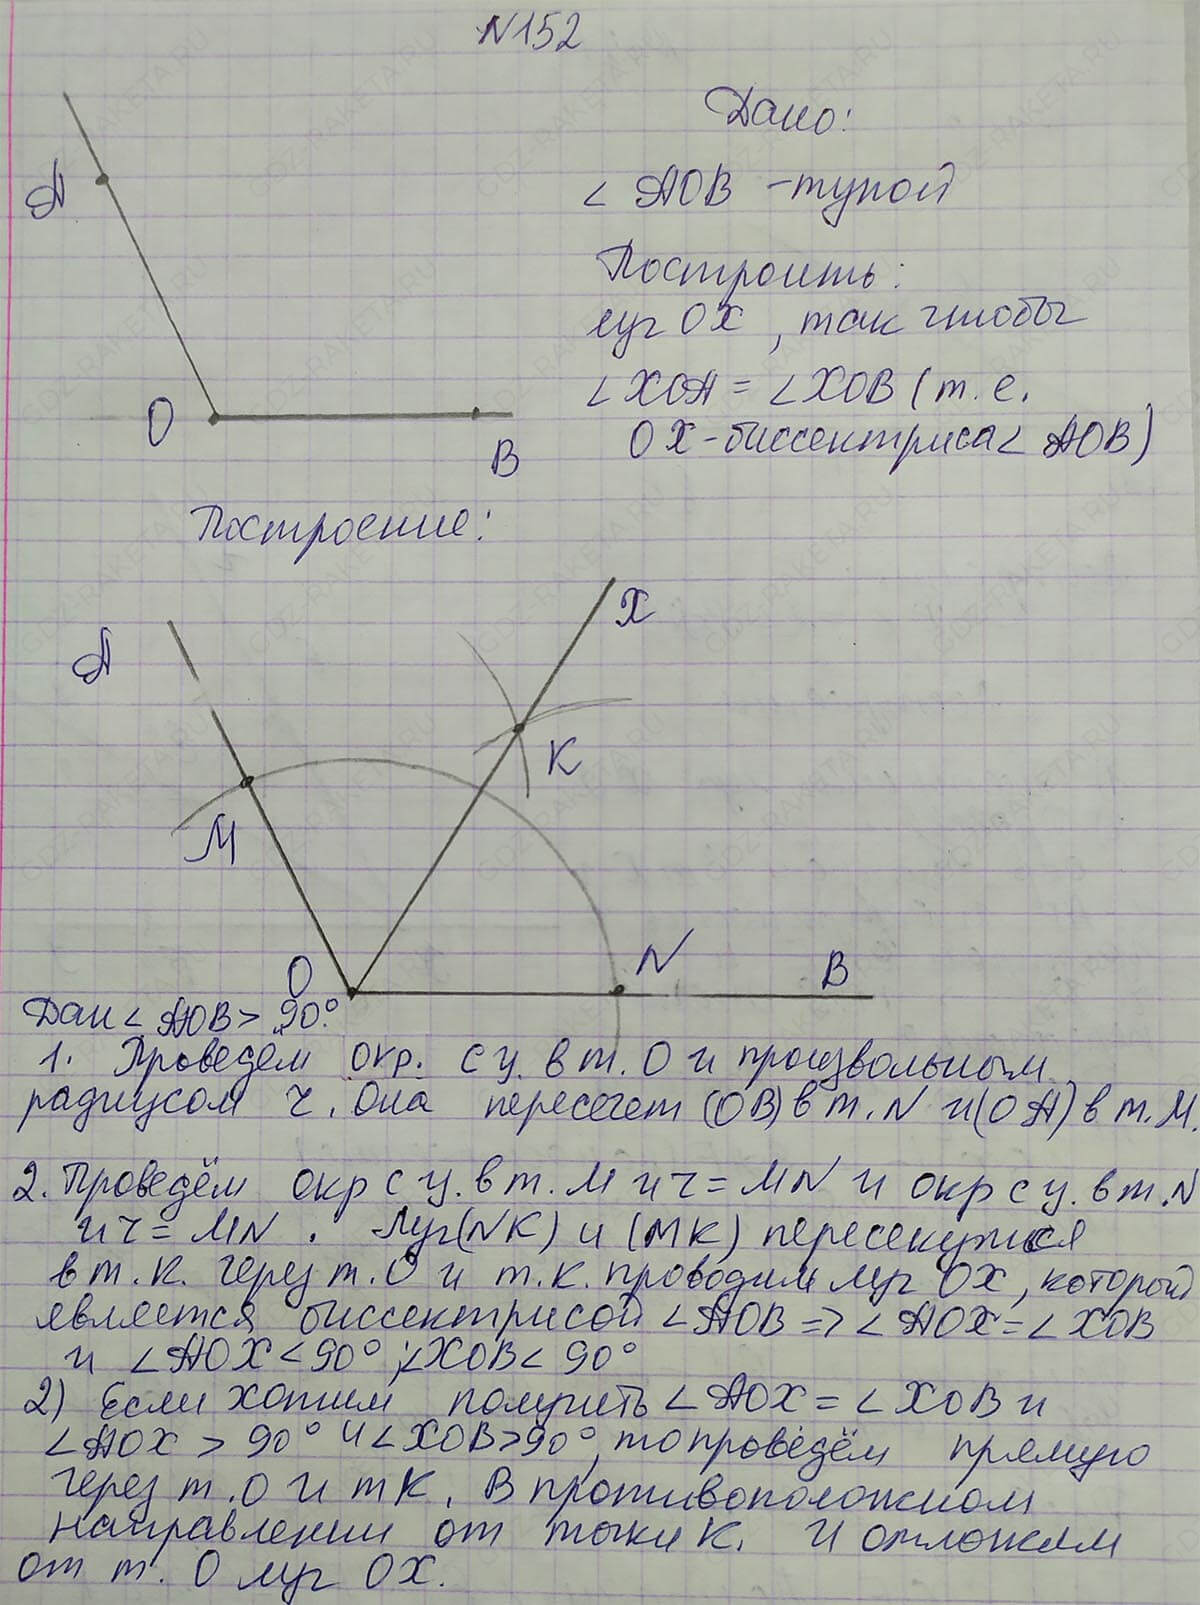 N152
Дано:
A
∠ AOB – тупой
Построить:
луч OX, так чтобы
∠XOA = ∠XOB (т.е.
O
B
OX-биссектриса ∠ AOB)
Построение:
X
A
K
M
O
N
B
Дан ∠ AOB > 90°.
1. Проведём окр. с ц. в т. O и произвольным
радиусом r. Она пересечет (OB) в т. N и (OA) в т. M.
2. Проведём окр с ц. в т. M и r = MN и окр с ц. в т. N
и r = MN. Луч (NK) и (MK) пересекутся
в т. K. Через т. O и т. K. проводим луч OX, который
является биссектрисой ∠AOB => ∠ AOX = ∠ XOB
и ∠AOX < 90°; ∠XOB < 90°
2) Если хотим получить ∠ AOX = ∠ XOB и
∠AOX > 90° и ∠XOB > 90°, то проведём прямую
через т. O и т K. В противоположном
направлении от точки K. И отложим
от т. O луч OX.
GDZ-RAKETA.RU